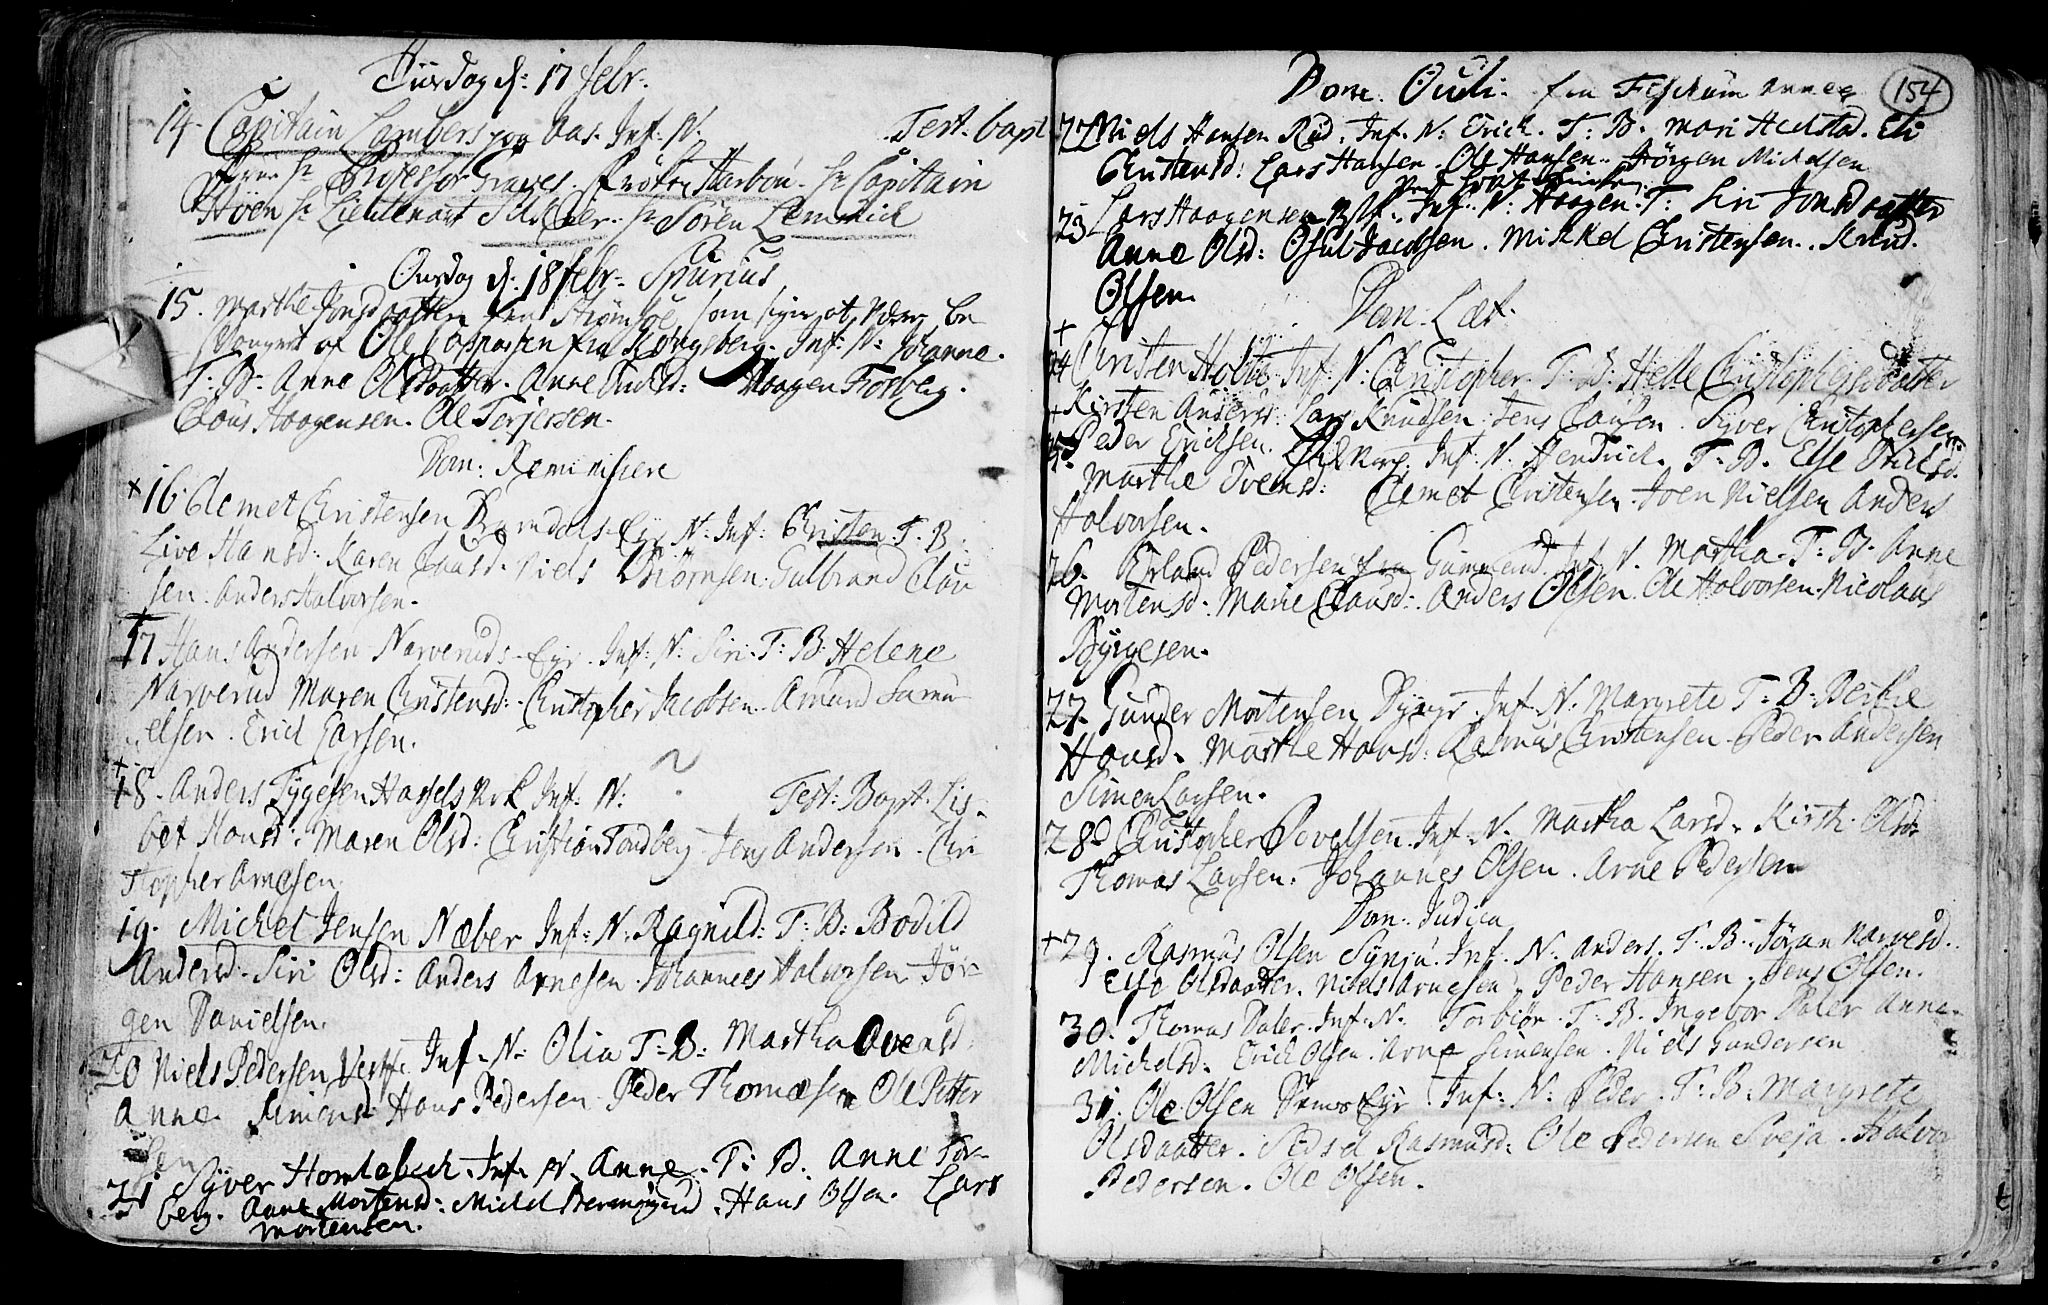 Tiirsdag d: 17 febr.
14. Capitain Lambers paa Aas. Inf. N. Test. bapt
Frue Hr Professor Graves. Frøken Harbou. Hr Capitain
Hven Hr Lieutenant Hr Søren Lemmich
Onsdag d: 18 febr. Spurius
15. Marthe Jonsdaatter fra Strømsøe, som siger at være be
svangret af Ole Caspersen fra Kongsberg. Inf: N: Johanne.
T: B: Anne Olsdaatter. Anne Haagen Fosberg.
Claus Haagensen. Ole Terjersen.
Dom: Reminiscere
+ 16. Clemet Christensen Eyr N: Inf: Christen T. B.
Live Hansd: Karen Clausd. Niels Biørnsen. Gulbrand Clau
sen. Anders Halvorsen.
17 Hans Andersen Narveruds Eyr. Inf: N: Siri. T: B: Helene
Narverud Maren Christensd: Christopher Jacobsen. Amund Samu
elsen. Erich Larsen.
+ 18. Anders Tygesen Hassels Inf: N: Test: Bapt. Lis-
bet Hansd: Maren Olsd: Christian Tandberg. Jens Andersen. Chri
stopher Arnesen.
19. Michel Jensen Næber Inf: N: Ragnild: T: B: Bodild
Andersd. Siri Olsd: Anders Arnesen. Johannes Halvorsen. Jør-
gen Danielsen.
20 Niels Pedersen Inf. N. Olia T. B: Martha Ovensd.
Anne Simensd. Hans Pedersen. Peder Thomæsen Ole Petter
sen
21 Syver Homlebech. Inf. N. Anne. T: B. Anne Fos-
berg. Anne Mortensd: Michel Hans Olsen. Lars
Mortensen.
Dom. Oculi. fra Fischum annex 154
22 Niels Hansen Rud. Inf. N: Erich. T: B. Mari Hedstad. Eli
Christensd: Lars Hansen. Ole Hansen. Jørgen Michelsen
23. Lars Haagensen Inf. N: Haagen. T: Siri Jonsdaatter
Anne Olsd: Osul Jacobsen. Mikkel Christensen. Knud
Olsen.
Dom. Læt.
+
24 Christen Holte Inf: N: Christopher. T: B: Helle Christophersdaatter
Kirsten Andersd: Lars Knudsen. Jens Clausen. Syver Christophersen
+ 25. Peder Erichsen. Inf: N. Hendrich. T: B. Else Nielsd.
Marthe Svensd: Clemet Christensen. Joen Nielsen Anders
Halvorsen.
26. Erland Pedersen fra Inf. N. Martha. T: B. Anne
Mortensd. Marie Clausd: Anders Olsen. Ole Halvorsen. Nicolaus
Byrgesen.
27. Gunder Mortensen Inf. N. Margrete T: B: Berthe
Hansd. Marthe Hansd: Rasmus Christensen. Peder Andersen
Simen Larsen.
28. Christopher Povelsen. Inf. N. Martha Larsd. Kirst. Olsd.
Thomas Larsen. Johannes Olsen. Arne Pedersen
Dom. Judica
+ 29. Rasmus Olsen Inf. N. Anders. T. B. Jøran Narvesd.
Else Olsdaatter. Niels Arnesen. Peder Hansen. Jens Olsen.
30. Thomas Daler. Inf. N. Torbiør. T. B. Ingebor Daler Anne
Michelsd. Erich Olsen. Arne Simensen. Niels Gundersen
31. Ole Olsen Eyr. Inf: N: Peder. T: B: Margrete
Olsdaatter. Sidsel Rasmusd: Ole Pedersen Halvor
Pedersen. Ole Olsen.